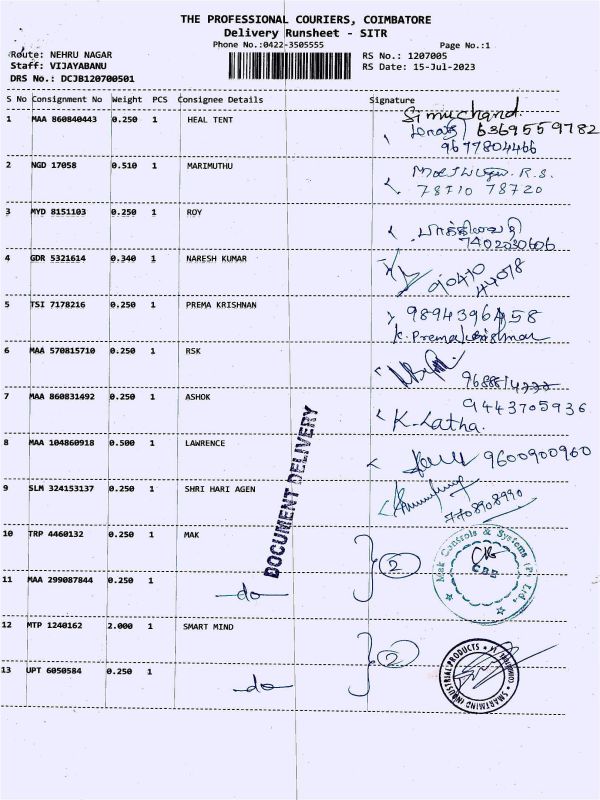 THE PROFESSIONAL COURIERS, COIMBATORE
Delivery Runsheet - SITR
Phone No.:0422-3505555 Page No.:1
Route: NEHRU NAGAR RS No.: 1207005
Staff: VIJAYABANU RS Date: 15-Jul-2023
DRS No.: DCJB120700501
S No Consignment No Weight PCS Consignee Details Signature
1 MAA 860840443 0.250 1 HEAL TENT
6369559782
9677804466
2 NGD 17058 0.510 1 MARIMUTHU R.S.
78710 78720
3 MYD 8151103 0.250 1 ROY
7402030606
4 GDR 5321614 0.340 1 NARESH KUMAR
90410
44078
5 TSI 7178216 0.250 1 PREMA KRISHNAN 9894396458
K. Premakrishnan
6 MAA 570815710 0.250 1 RSK
7 MAA 860831492 0.250 1 ASHOK 9443705936
K-Latha.
8 MAA 104860918 0.500 1 LAWRENCE 9600900960
9 SLM 324153137 0.250 1 SHRI HARI AGEN
7708908990
DOCUMENT DELIVERY
10 TRP 4460132 0.250 1 MAK 2
Mak Controls & Systems (P) Ltd.,
CBE
11 MAA 299087844 0.250 1 -do-
12 MTP 1240162 2.000 1 SMART MIND 2
SMARTMIND INDUSTRIAL PRODUCTS
13 UPT 6050584 0.250 1 -do-